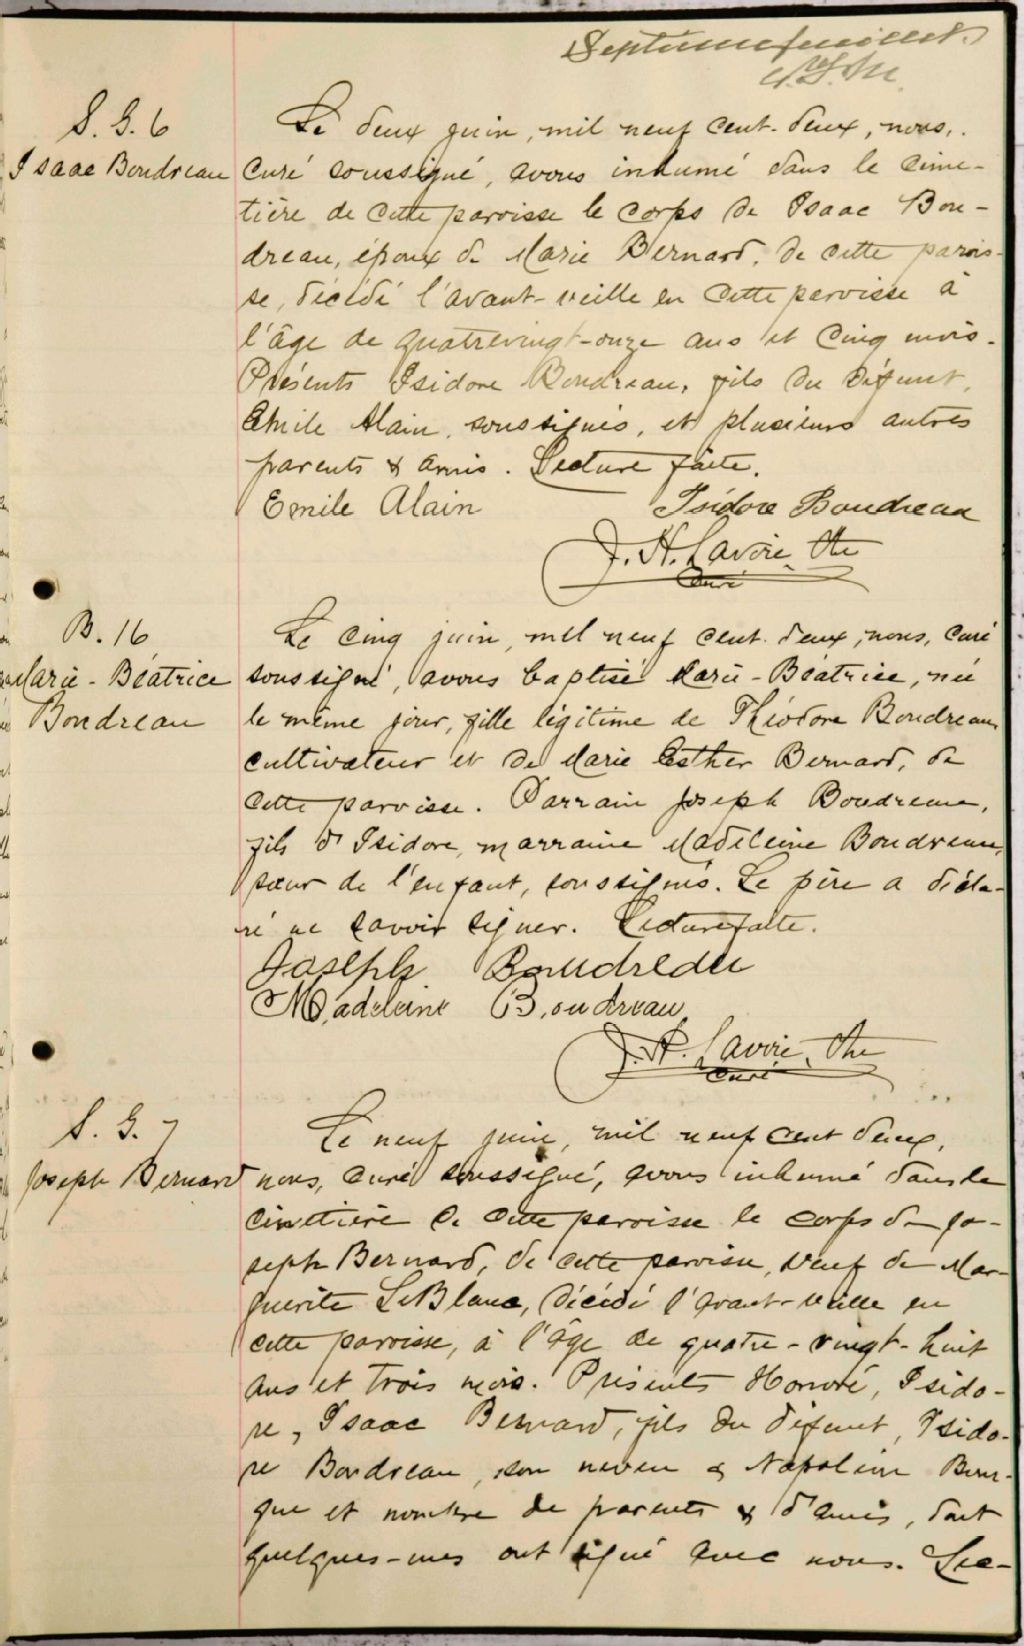 Septième feuillet
S. G. 6
Isaac Boudreau
Le deux juin, mil neuf cent-deux, nous,
curé soussigné, avons inhumé dans le cime-
tière de cette paroisse le corps de Isaac Bou-
dreau, époux de Marie Bernard, de cette parois-
se, décédé l'avant-veille en cette paroisse à
l'âge de quatrevingt-onze ans et cinq mois.
Présents Isidore Boudreau, fils du défunt,
Emile Alain, soussignés, et plusieurs autres
parents & amis. Lecture faite.
Emile Alain Isidore Boudreau
J. H. Lavoie, Ptre
Curé
B. 16
Marie-Béatrice
Boudreau
Le cinq juin, mil neuf cent deux, nous, curé
soussigné, avons baptisé Marie-Béatrice, née
le même jour, fille légitime de Théodore Boudreau
cultivateur et de Marie Esther Bernard, de
cette paroisse. Parrain Joseph Boudreau,
fils d'Isidore, marraine Madeleine Boudreau,
sœur de l'enfant, soussignés. Le père a décla-
ré ne savoir signer. Lecture faite.
Joseph Boudreau
Madeleine Boudreau
J. H. Lavoie, Ptre
curé
S. G. 7
Joseph Bernard
Le neuf juin, mil neuf cent deux,
nous, curé soussigné, avons inhumé dans le
cimetière de cette paroisse le corps de Jo-
seph Bernard, de cette paroisse, veuf de Mar-
guerite LeBlanc, décédé l'avant-veille en
cette paroisse, à l'âge de quatre-vingt-huit
ans et trois mois. Présents Honoré, Isido-
re, Isaac Bernard, fils du défunt, Isido-
re Boudreau, son neveu & Napoléon Bour-
que et nombre de parents & d'amis, dont
quelques-unes ont signé avec nous. Lec-